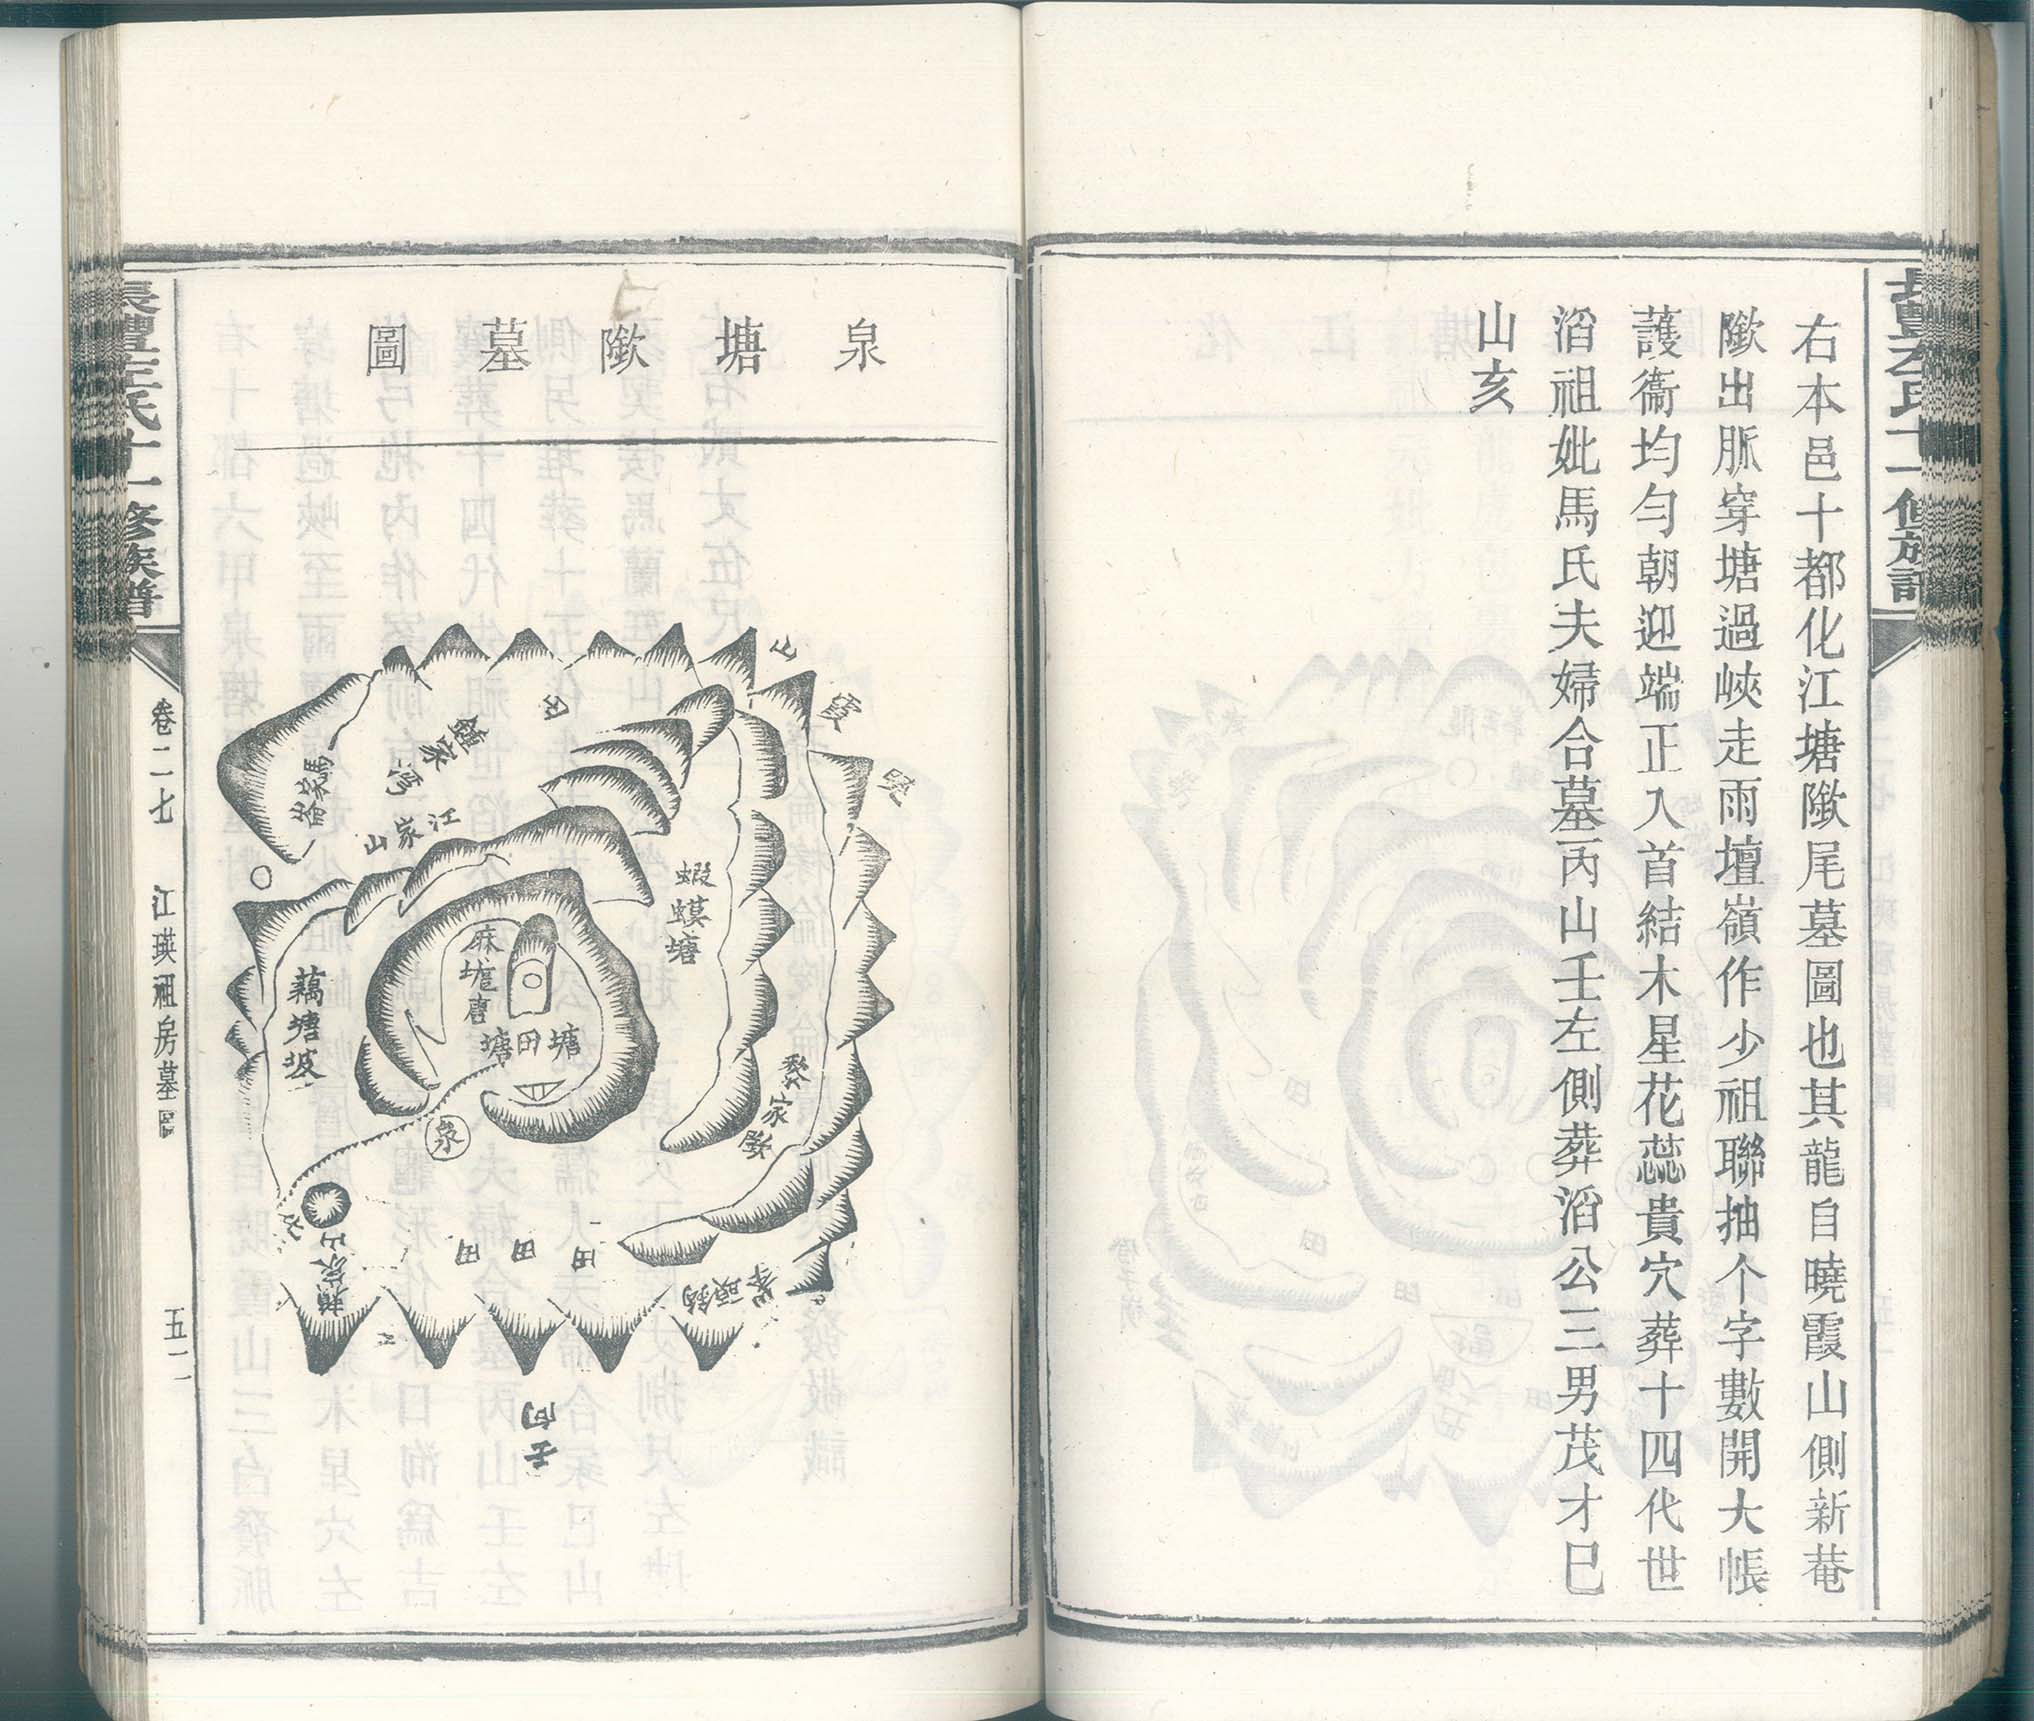 右本邑十都化江塘隞尾墓圖也其龍自曉霞山側新菴
隞出脈穿塘過峽走雨壇嶺作少祖聯抽个字數開大帳
護衞均勻朝迎端正入首結木星花蕊貴穴葬十四代世
滔祖妣馬氏夫婦合墓丙山壬左側葬滔公三男茂才巳
山亥
泉塘隞墓圖
山霞曉
田
鍾家灣
馬鞍崙
江家山
蝦蟆塘
藕塘坡
塘田塘
泉
田田田
壬向
氏十一修族譜
卷二七
江瑛祖房墓圖
五二